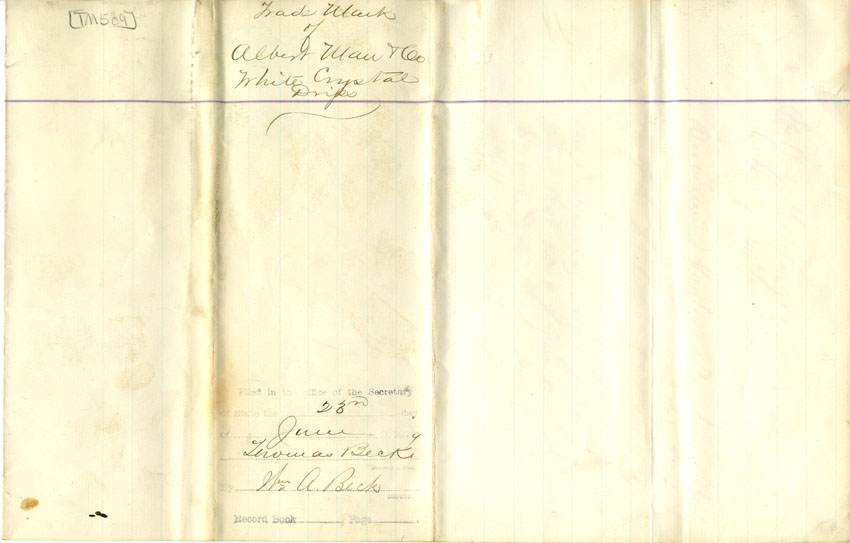 [TM509]
Trade Mark
of
Albert Mau & Co
White Crystal
Drips
Filed in the office of the Secretary
of State the 23rd day
of June
Thomas Beck
By Wm A. Beck
Record Book Page